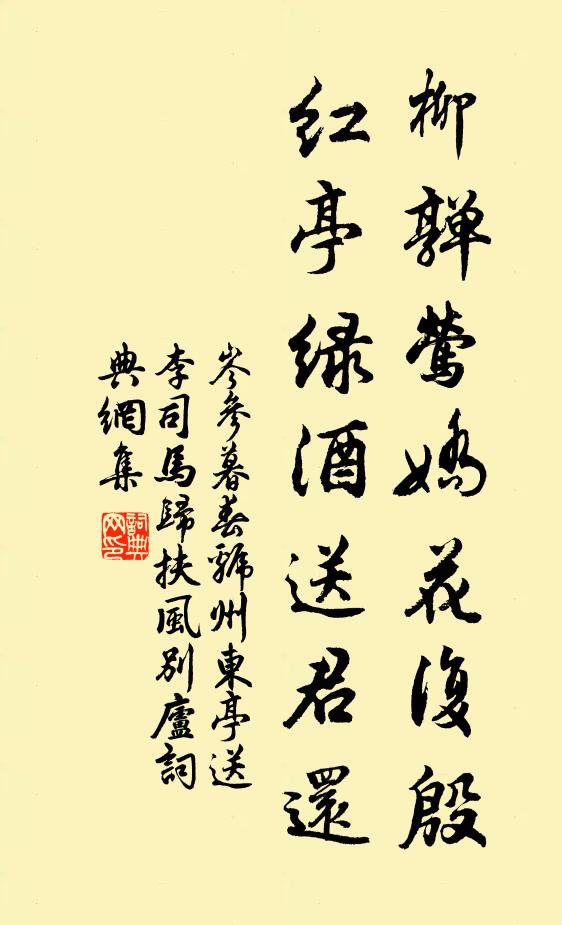 柳亸莺娇花復殷
红亭绿酒送君還
岑參暮春虢州東亭送
李司馬歸扶風别廬詞
典網集
詞典
网印